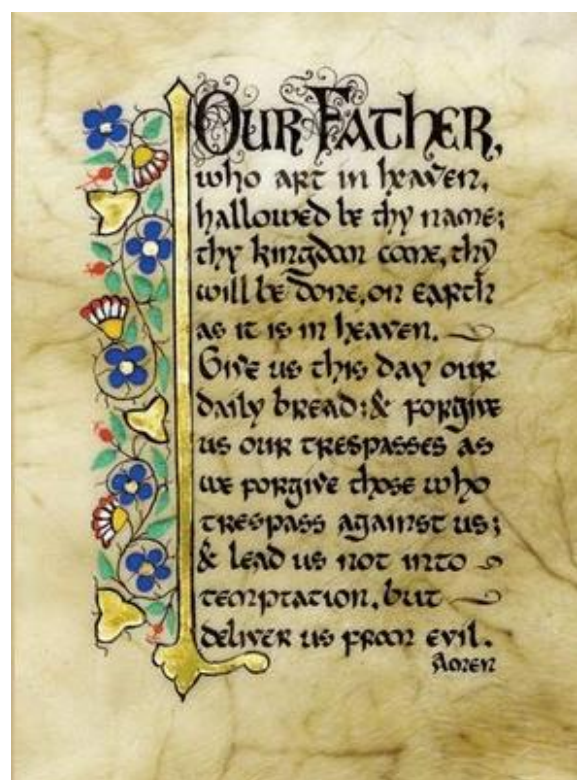 Our Father,
who art in heaven,
hallowed be thy name;
thy kingdom come, thy
will be done, on earth
as it is in heaven.
Give us this day our
daily bread; & forgive
us our trespasses as
we forgive those who
trespass against us;
& lead us not into
temptation, but
deliver us from evil.
Amen